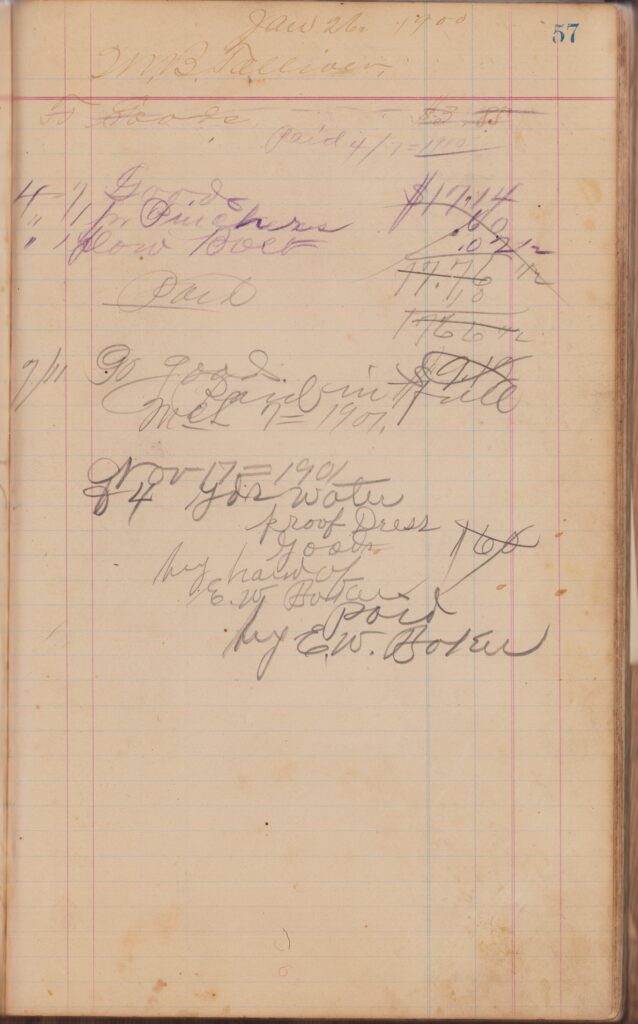 57
Jan 26. 1900
M. B. Talliver.
To Goods $3.85
Paid 4/7=1900
4-7 Goods $17.14
" " 1 pr. Pinchers .60
" " plow Bolt .02 1/2
17.76 1/2
Paid .10
1766 1/2
7/11 To goods
Paid in full
Mch 7= 1901.
Nov-17=1901
To 4 yds water
proof Dress
Goods 160
by hand of
E. W. Boker
Paid
by E. W. Boker